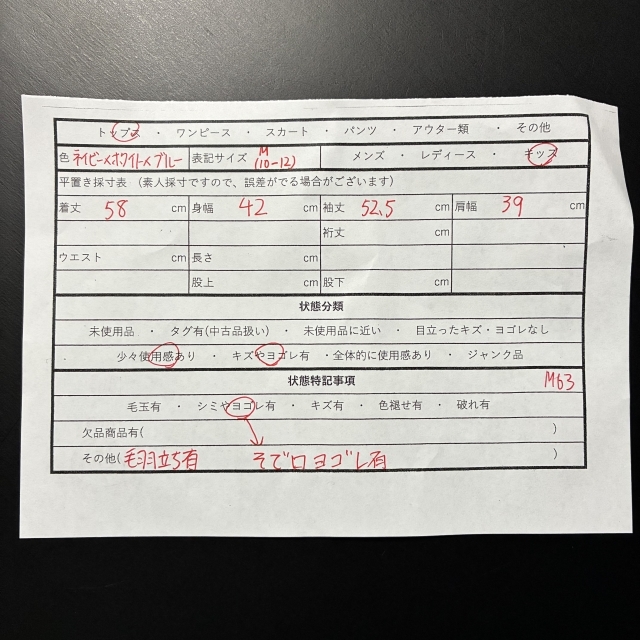 トップス ・ ワンピース ・ スカート ・ パンツ ・ アウター類 ・ その他
色 ネイビー×ホワイト×ブルー 表記サイズ M (10-12) メンズ ・ レディース ・ キッズ
平置き採寸表 (素人採寸ですので、誤差がでる場合がございます)
着丈 58 cm 身幅 42 cm 袖丈 52.5 cm 肩幅 39 cm
裄丈 cm
ウエスト cm 長さ cm
股上 cm 股下 cm
状態分類
未使用品 ・ タグ有(中古品扱い) ・ 未使用品に近い ・ 目立ったキズ・ヨゴレなし
少々使用感あり ・ キズやヨゴレ有 ・全体的に使用感あり ・ ジャンク品
状態特記事項 M63
毛玉有 ・ シミやヨゴレ有 ・ キズ有 ・ 色褪せ有 ・ 破れ有
欠品商品有( )
その他( 毛羽立ち有 そで口ヨゴレ有 )